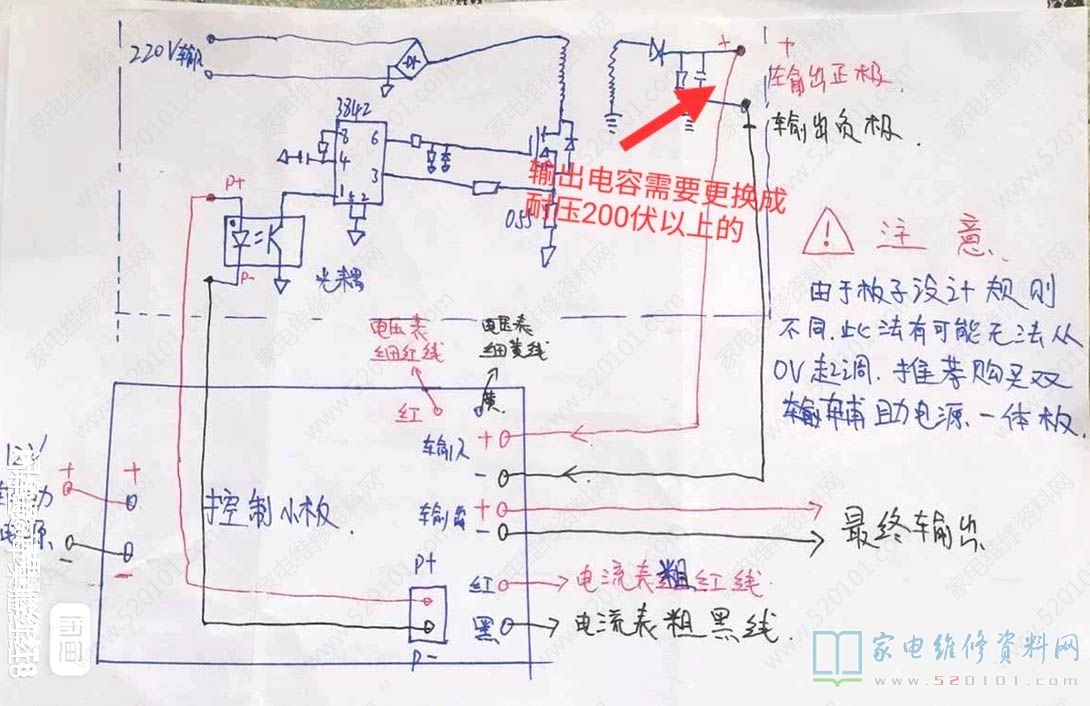 220V输入
3842
8
6
4
3
1
2
P+
P-
光耦
055
+
+
左输出正极
-
输出负极.
输出电容需要更换成
耐压200伏以上的
注 意
由于板子设计规则
不同.此法有可能无法从
0V起调.推荐购买双
输辅助电源一体板.
电压表
细红线
电压表
细黄线
红
黄
输入
+
-
输出
+
-
最终输出
12V
+
-
+
-
控制小板.
P+
P-
红
电流表粗红线.
黑
电流表粗黑线.
闲鱼
家电维修资料网
www.520101.com